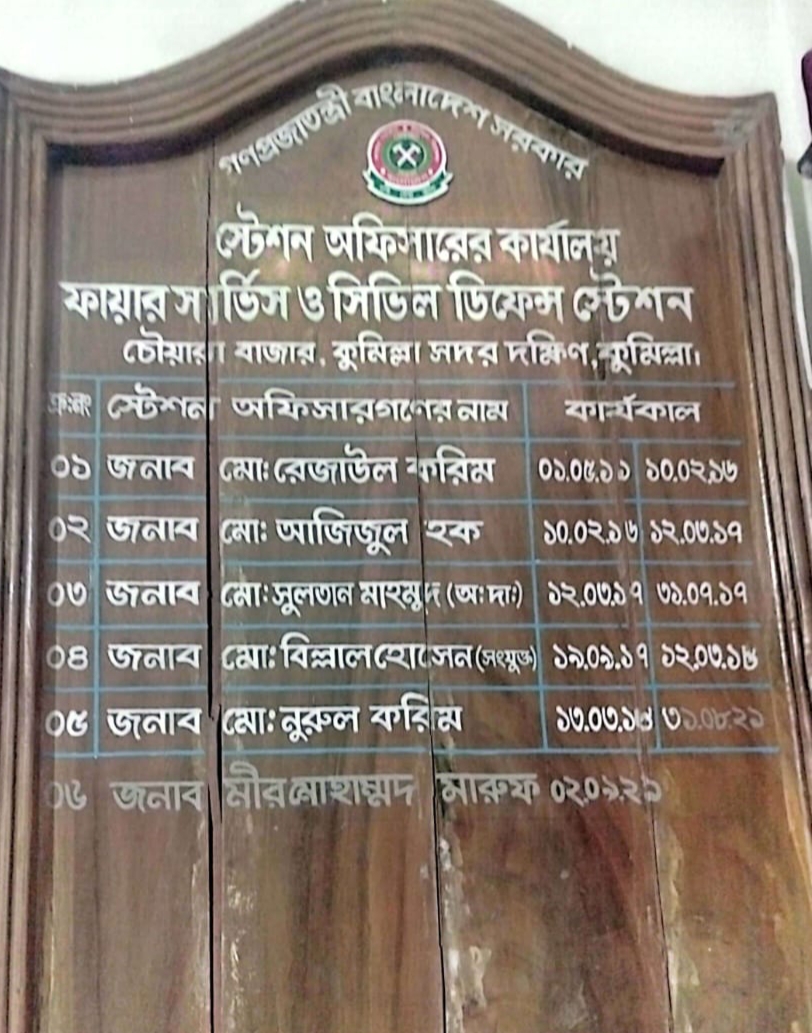 গণপ্রজাতন্ত্রী বাংলাদেশ সরকার
স্টেশন অফিসারের কার্যালয়
ফায়ার সার্ভিস ও সিভিল ডিফেন্স স্টেশন
চৌয়ারা বাজার, কুমিল্লা সদর দক্ষিণ, কুমিল্লা।
ক্র:নং স্টেশন অফিসারগণের নাম কার্যকাল
০১ জনাব মো: রেজাউল করিম ০১.০৫.১১ ১০.০২.১৬
০২ জনাব মো: আজিজুল হক ১০.০২.১৬ ১২.০৩.১৭
০৩ জনাব মো: সুলতান মাহমুদ (অ:দা:) ১২.০৩.১৭ ৩১.০৭.১৭
০৪ জনাব মো: বিল্লাল হোসেন (সংযুক্ত) ১৯.০৯.১৭ ১২.০৩.১৮
০৫ জনাব মো: নুরুল করিম ১৩.০৩.১৮ ৩১.০৮.২১
০৬ জনাব মীর মোহাম্মদ মারুফ ০২.০৯.২১